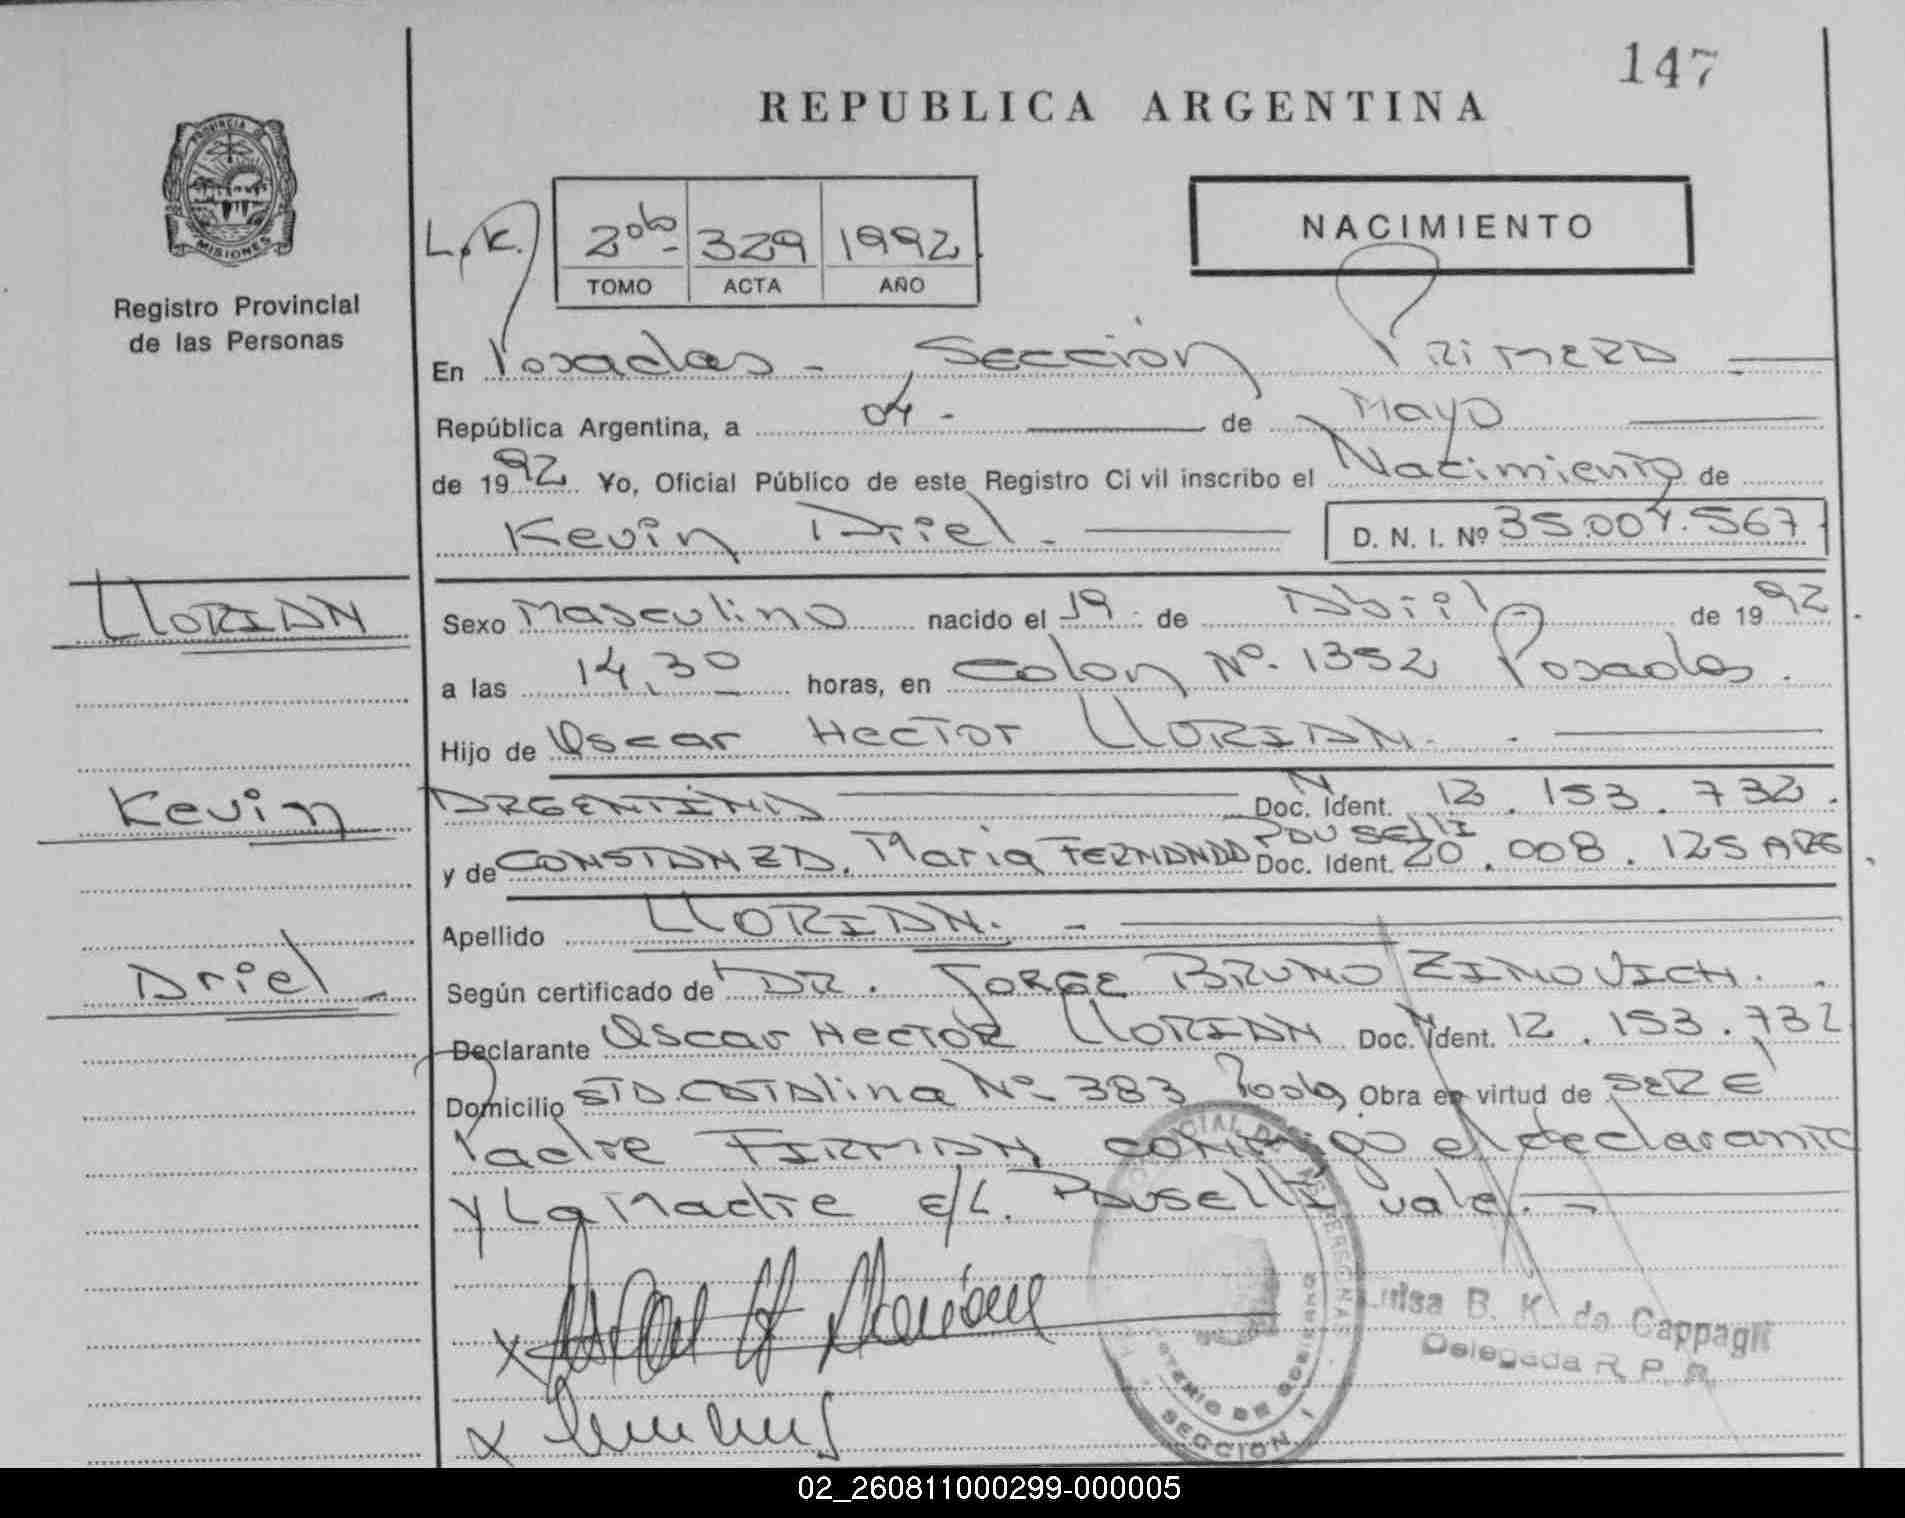 147
REPUBLICA ARGENTINA
PROVINCIA DE
MISIONES
Registro Provincial
de las Personas
L.K.
2do 329 1992
TOMO ACTA AÑO
NACIMIENTO
En Posadas - Sección PRIMERA
República Argentina, a 04 - de Mayo
de 1992 Yo, Oficial Público de este Registro Civil inscribo el Nacimiento de
Kevin Ariel. - D. N. I. Nº 35.004.567
LLORIAN
Sexo Masculino nacido el 19 de Abril de 1992.
a las 14,30 horas, en Colon Nº. 1352 Posadas.
Hijo de Oscar Hector LLORIAN. -
Kevin
ARGENTINA Doc. N Ident. 12.153.732.
PAUSELLI
y de CONSTANZA, Maria FERNANDA Doc. Ident. 20.008.125 ARG.
Apellido LLORIAN. -
Ariel -
Según certificado de DR. JORGE BRUNO ZINOVICH.
Declarante Oscar Hector LLORIAN Doc. N Ident. 12.153.732
Domicilio STA. CATAlina Nº 383 Pdas Obra en virtud de SER El
Padre FIRMAN conmigo el declarante
y La Madre e/L. PAUSELLI vale. -
Luisa B. K. de Cappagli
Delegada R. P. P.
SECCION 1
02_260811000299-000005